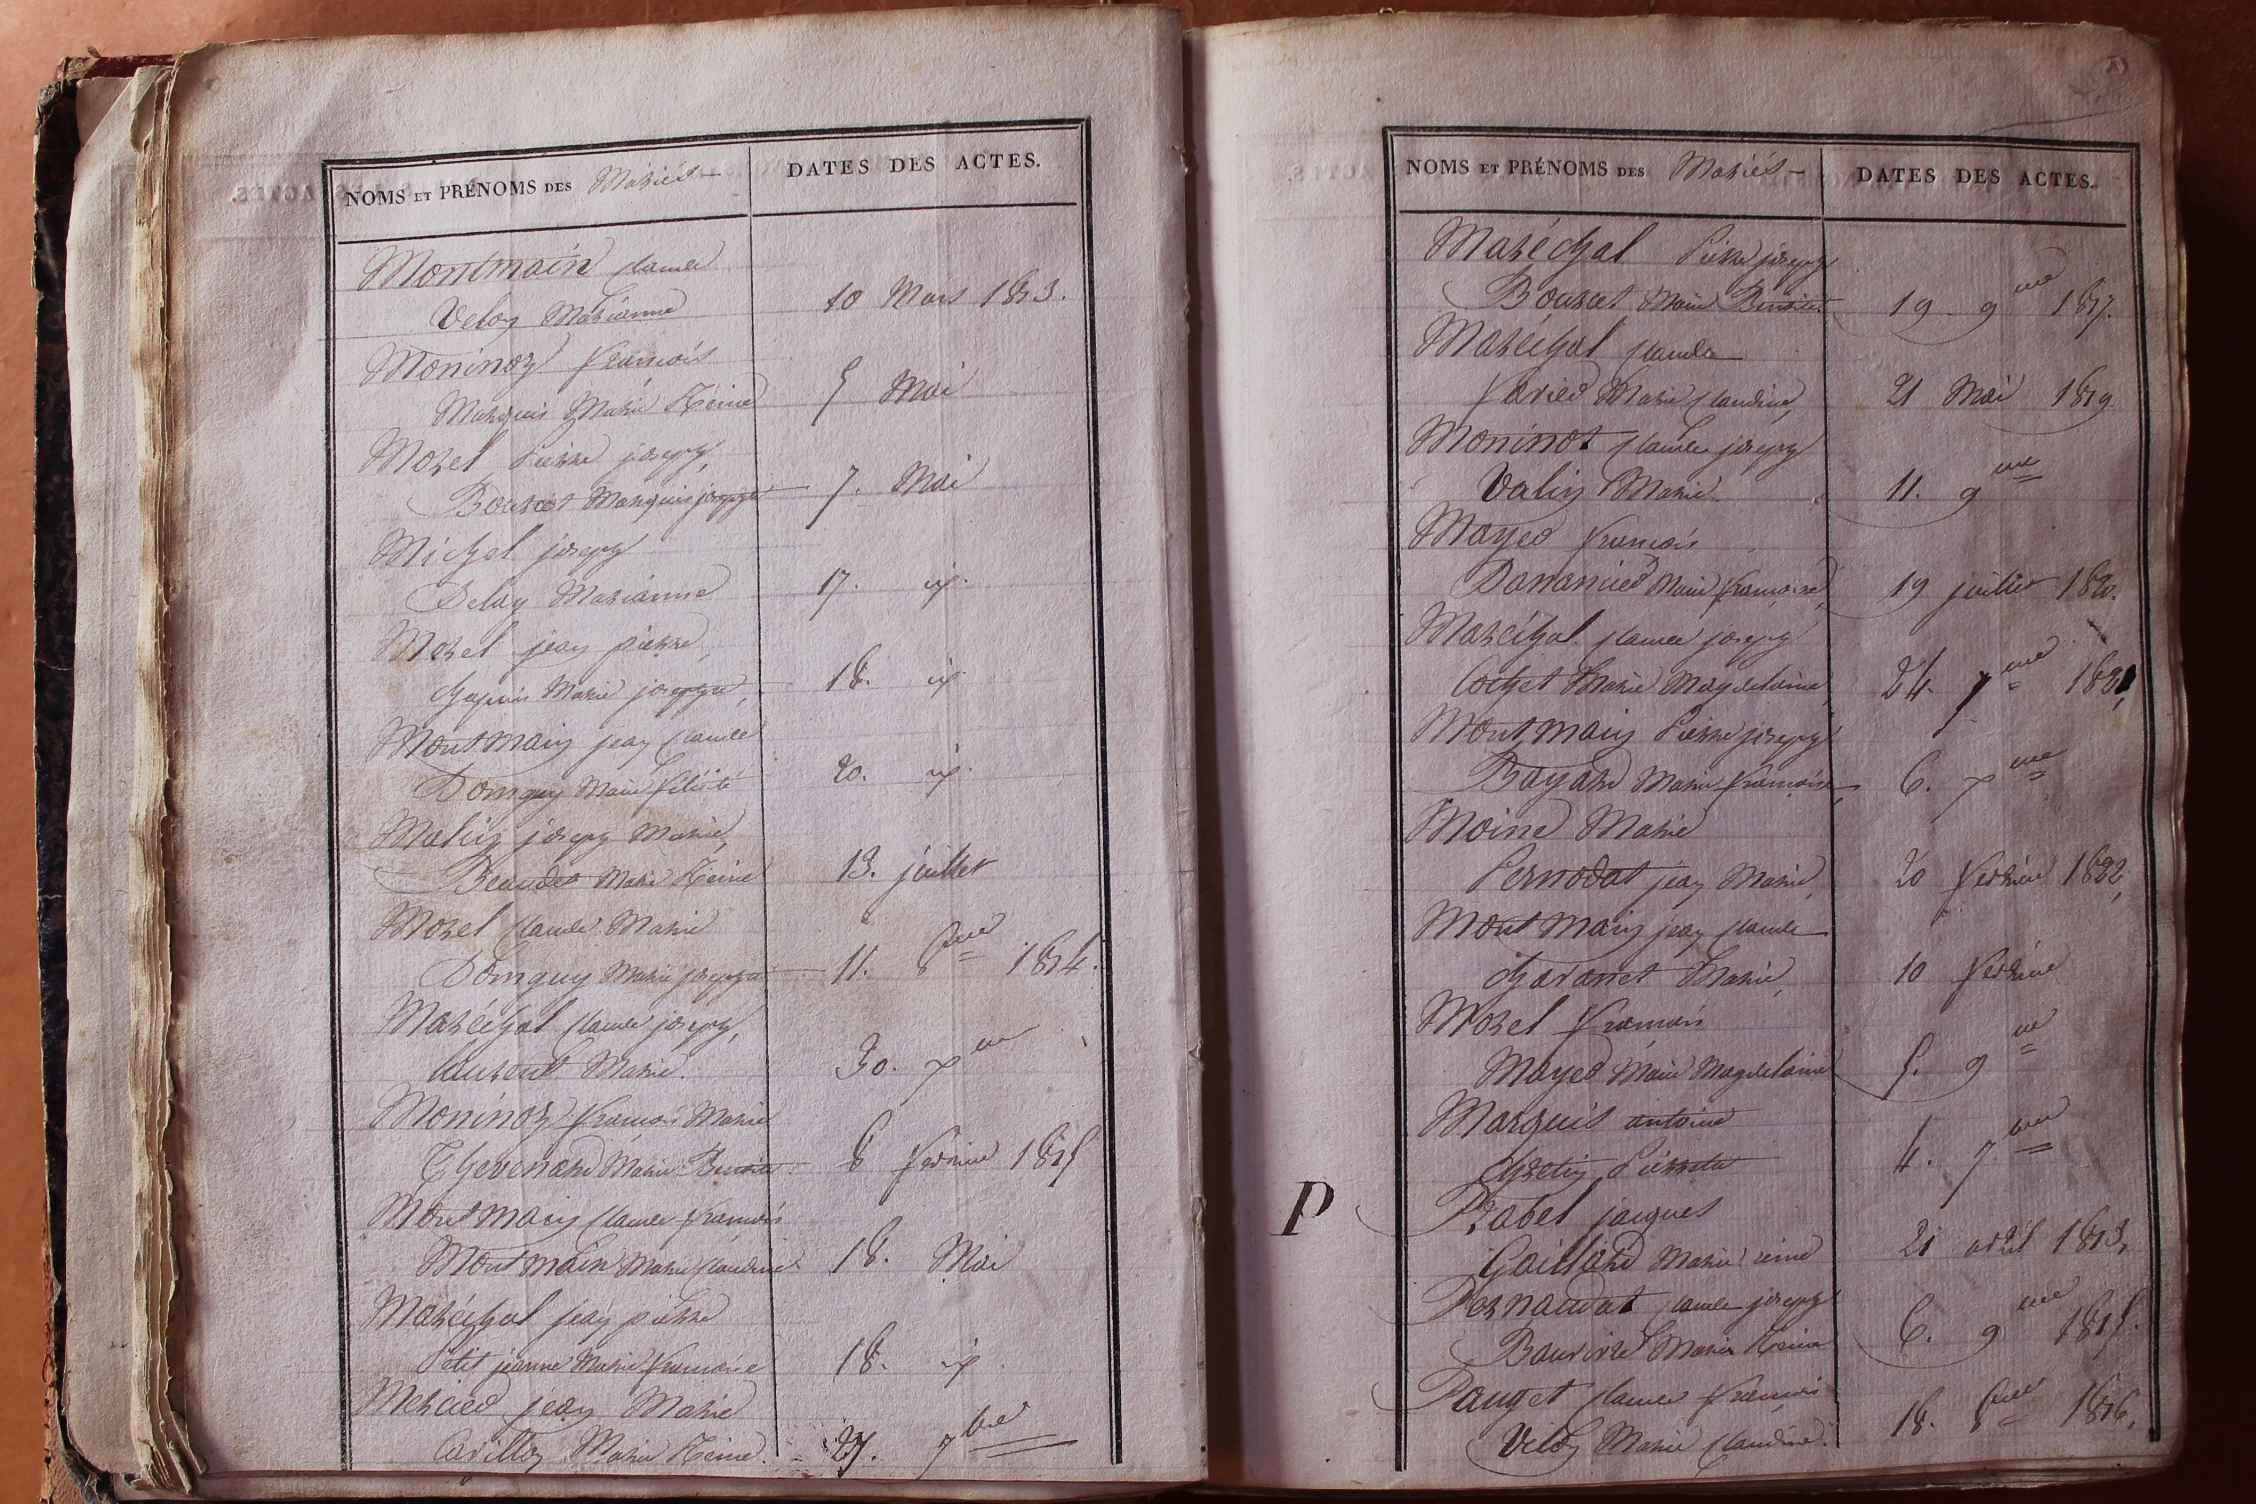 NOMS ET PRÉNOMS DES Mariés
DATES DES ACTES.
Montmain Claude
Veloy Marianne
10 Mars 1813.
Moninoz François
Marquis Marie Reine
5 Mai
Morel Pierre joseph
Bourcet joseph
7. Mai
Michel joseph
Delay Marianne
17. id.
Morel jean pierre
Chapuis Marie josephe
18. id.
Montmain jean Claude
Domguy Marie Félicité
20. id.
Malin joseph Marie
Beaudet Marie Reine
13. juillet
Morel Claude Marie
Domguy Marie josephe
11. 8bre 1814.
Maréchal Claude joseph
Laurent Marie.
30. xbre
Moninoz François Marie
Thevenard Marie
8 février 1815
Montmain Claude François
Montmain Marie Claudine
18. Mai
Maréchal jean pierre
Petit jeanne Marie Françoise
18. id.
Mercier jean Marie
Cavilloz Marie Reine.
27. 7bre
NOMS ET PRÉNOMS DES Mariés
DATES DES ACTES.
Maréchal Pierre joseph
Bourcet Marie
19 9bre 1817.
Maréchal Claude
Marie Claudine
21 Mai 1819
Moninot Claude joseph
Valin Marie
11. 9bre
Mayer François
Marie Françoise
19 juillet 1820.
Maréchal Claude joseph
Cochet Marie Magdelaine
24. 7bre 1821
Montmain Pierre joseph
Bayard Marie Françoise
6. xbre
Moine Marie
Pernodat jean Marie
20 février 1822,
Montmain jean Claude
Marie
10 février
Morel François
Mayer Marie Magdelaine
5. 9bre
Marquis antoine
Chretin Pierrette
4. 7bre
P
Prabel jacques
Gaillard Marie reine
21 avril 1813,
Pernaudat Claude joseph
Marie Reine
6. 9bre 1815.
Pauget Claude François
Veloy Marie Claudine.
18. 8bre 1816.